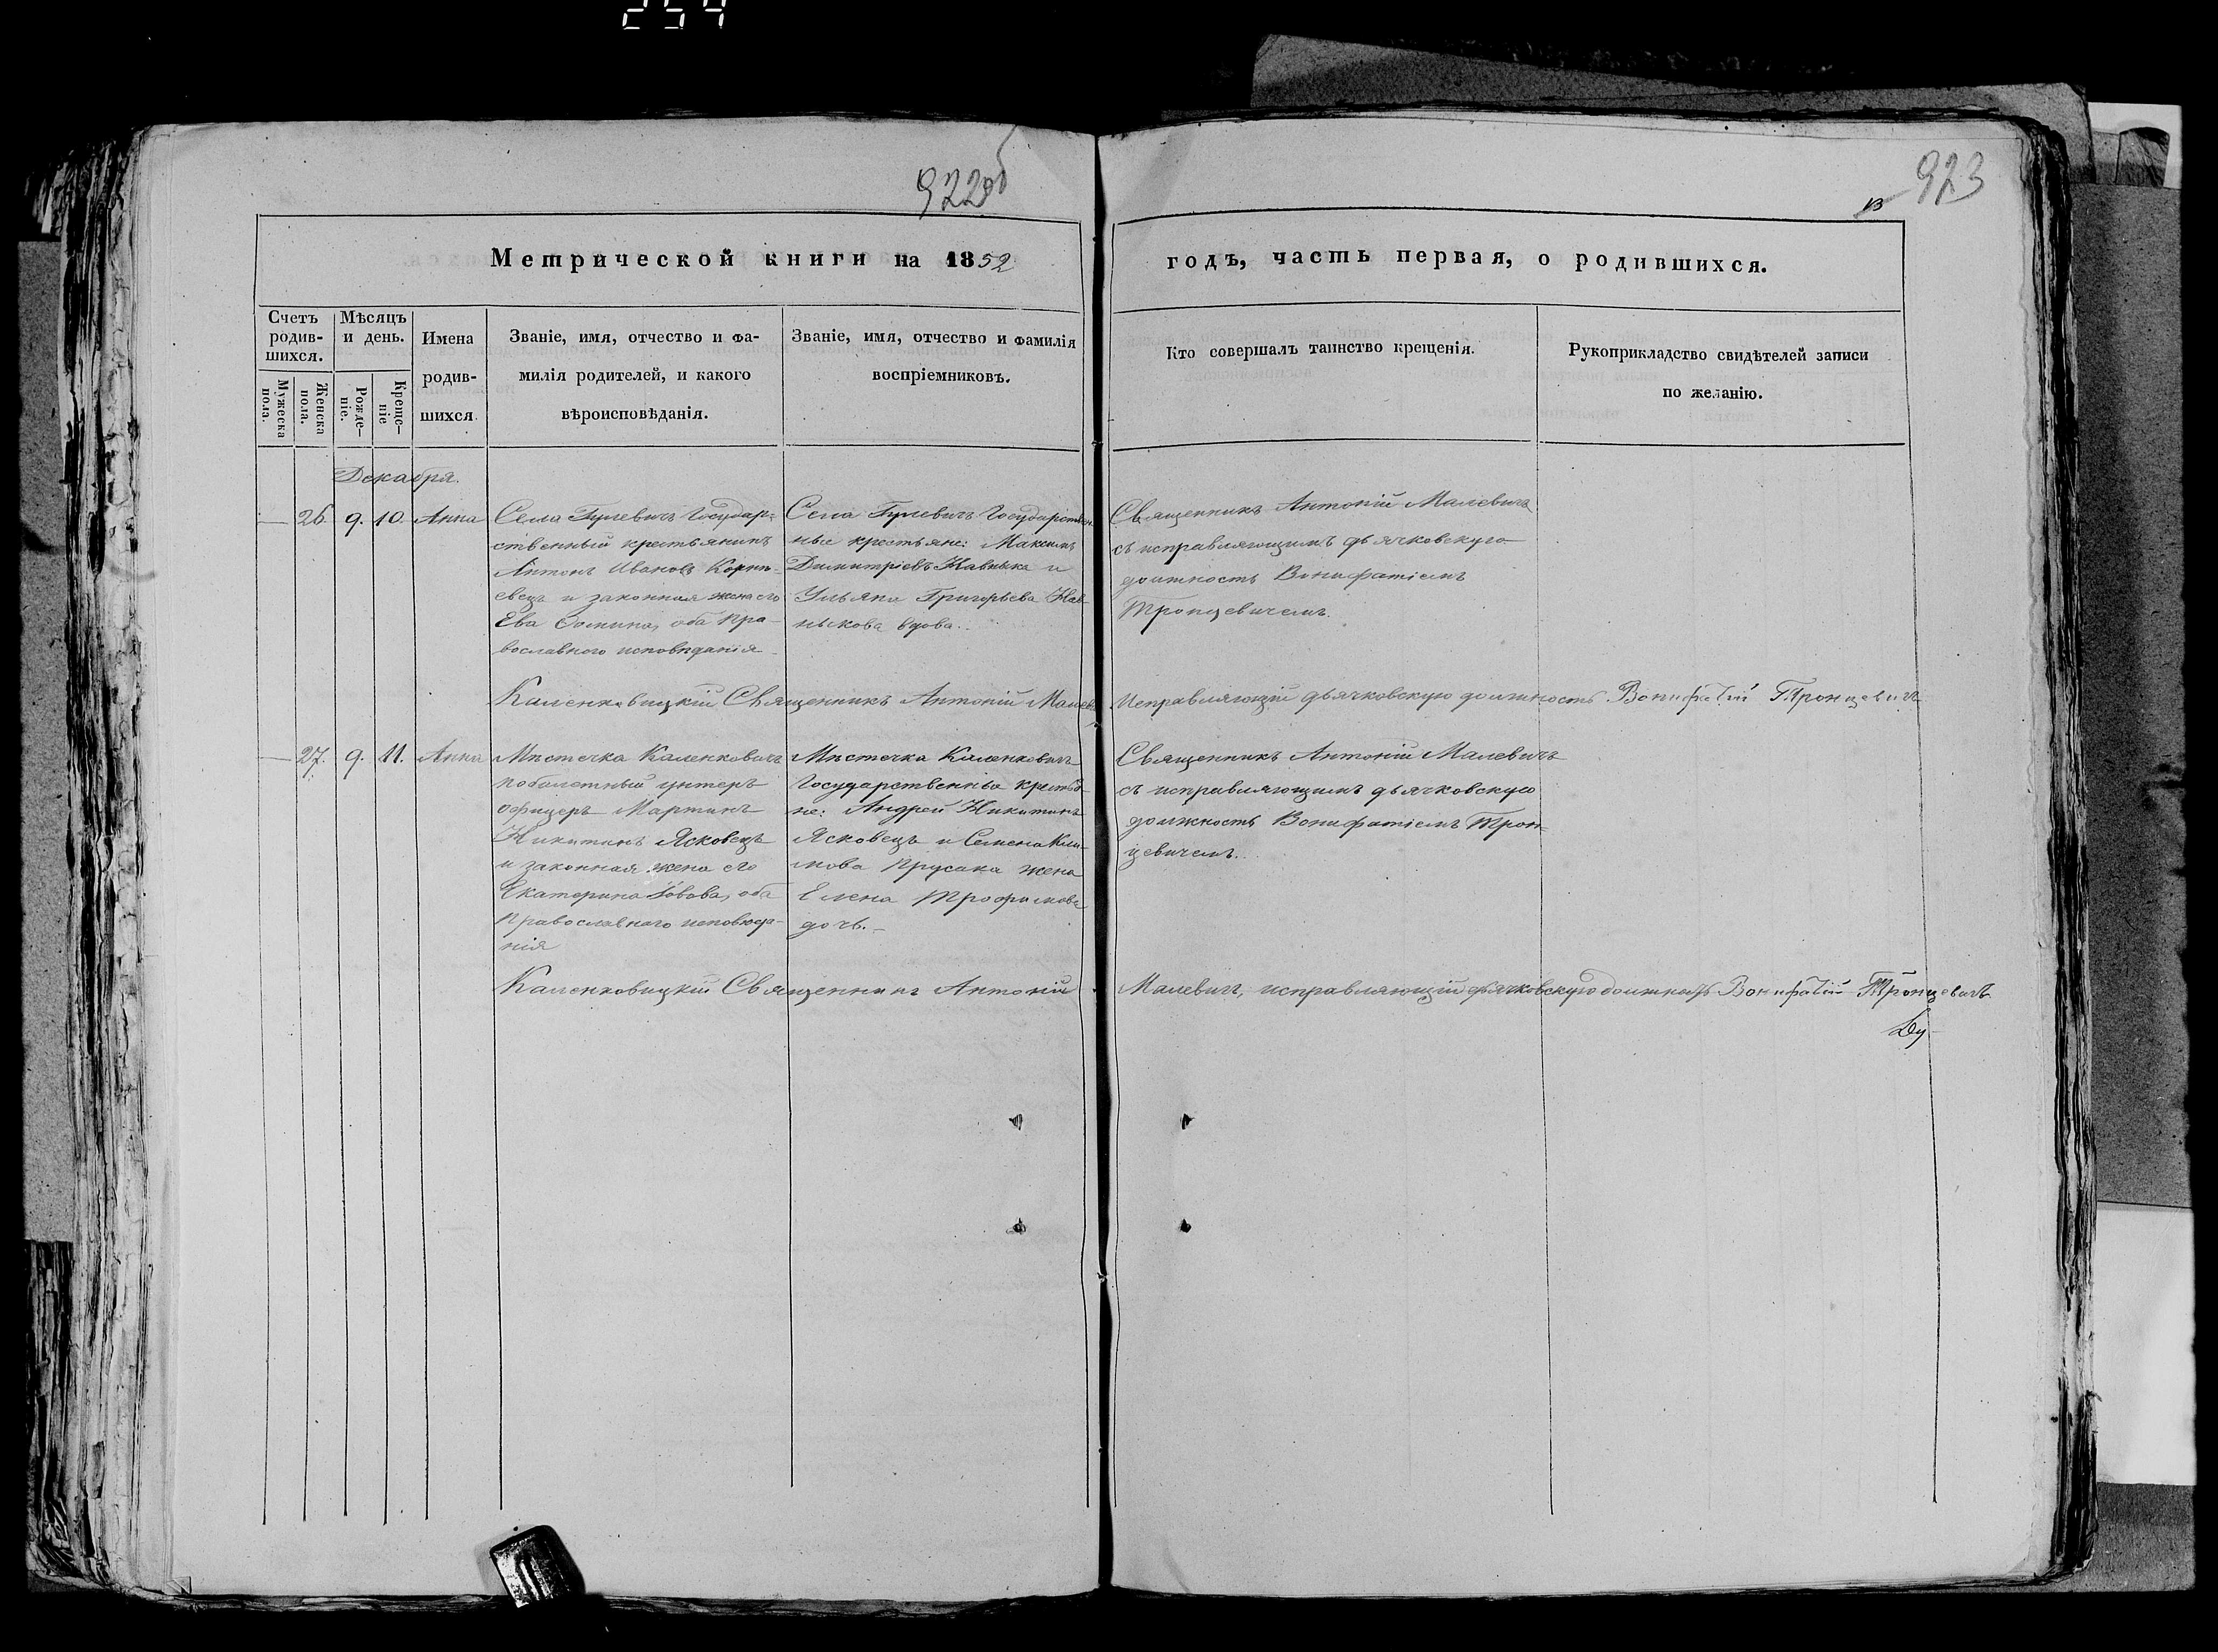 254
922об
923
13
Метрической книги на 1852
годъ, часть первая, о родившихся.
Счетъ родив-шихся.
Мужеска пола.
Женска пола.
Мѣсяцъ и день.
Рожде-ніе.
Креще-ніе
Имена родив-шихся.
Званіе, имя, отчество и фа-
милія родителей, и какого
вѣроисповѣданія.
Званіе, имя, отчество и фамилія
воспріемниковъ.
Кто совершалъ таинство крещенія.
Рукоприкладство свидѣтелей записи
по желанію.
Декабря.
26. 9. 10. Анна
Села Гулевичъ Государ-
ственный крестьянинъ
Антонъ Ивановъ Корни-
евецъ и законная жена его
Ева Фомина, оба Пра-
вославного исповѣданія
Села Гулевичъ Государствен
ные крестьяне: Максимъ
Димитріевъ Кавныка и
Ульяна Григорьева Кав
ныкова вдова.
Священникъ Антоній Малевичъ
съ исправляющимъ дьячковскую
должность Вонифатіемъ
Тронцевичемъ.
Каленковицкій Священникъ Антоній Малев
Исправляющій дьячковскую должность Вонифатій Тронцевичъ
27. 9. 11. Анна
Мѣстечка Каленковичъ
побилетный унтеръ
офицеръ Мартинъ
Никитинъ Ясковецъ
и законная жена его
Екатерина оба
Православнаго исповѣда-
нія
Мѣстечка Каленковичъ
Государственные крестья-
не: Андрей Никитинъ
Ясковецъ и Семена Кли-
мова Прусака жена
Елена Трофимова
дочь.
Священникъ Антоній Малевичъ
съ исправляющимъ дьячковскую
должность Вонифатіемъ Трон-
цевичемъ.
Каленковицкій Священникъ Антоній
Малевичъ, исправляющій дьячковскую должность Вонифатій Тронцевичъ
Ду-